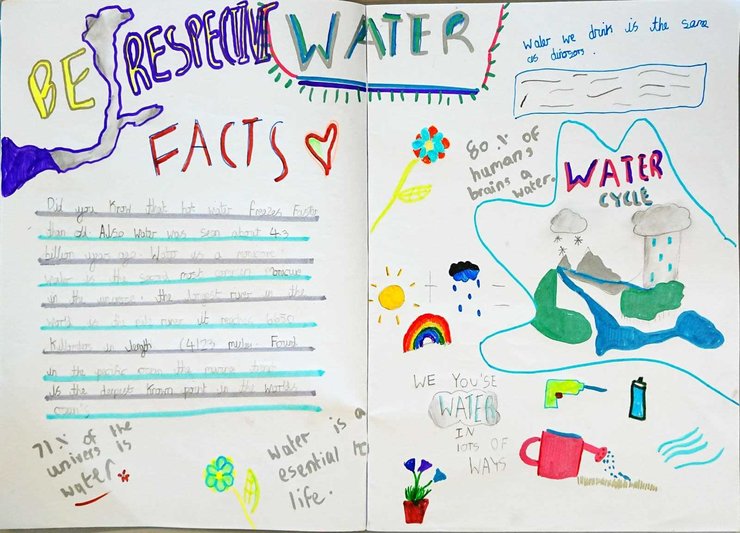 BE RESPECTIVE WATER
FACTS
Did you know that hot water freezes faster
than old. Also water was seen about 4.3
billion year ago. Water is a
water is the second most common
in the universe. the longest river in the
world is the river it 6650
Killomiters in length (4123 miles. Found
in the pacific ocean the
Is the deepest known point in the worlds
71% of the
univers is
water
Water is a
esential to
life.
Water we drink is the same
as
80% of
humans
brains a
water.
WATER
CYCLE
WE YOU'SE
WATER
IN
lOTS OF
WAYS